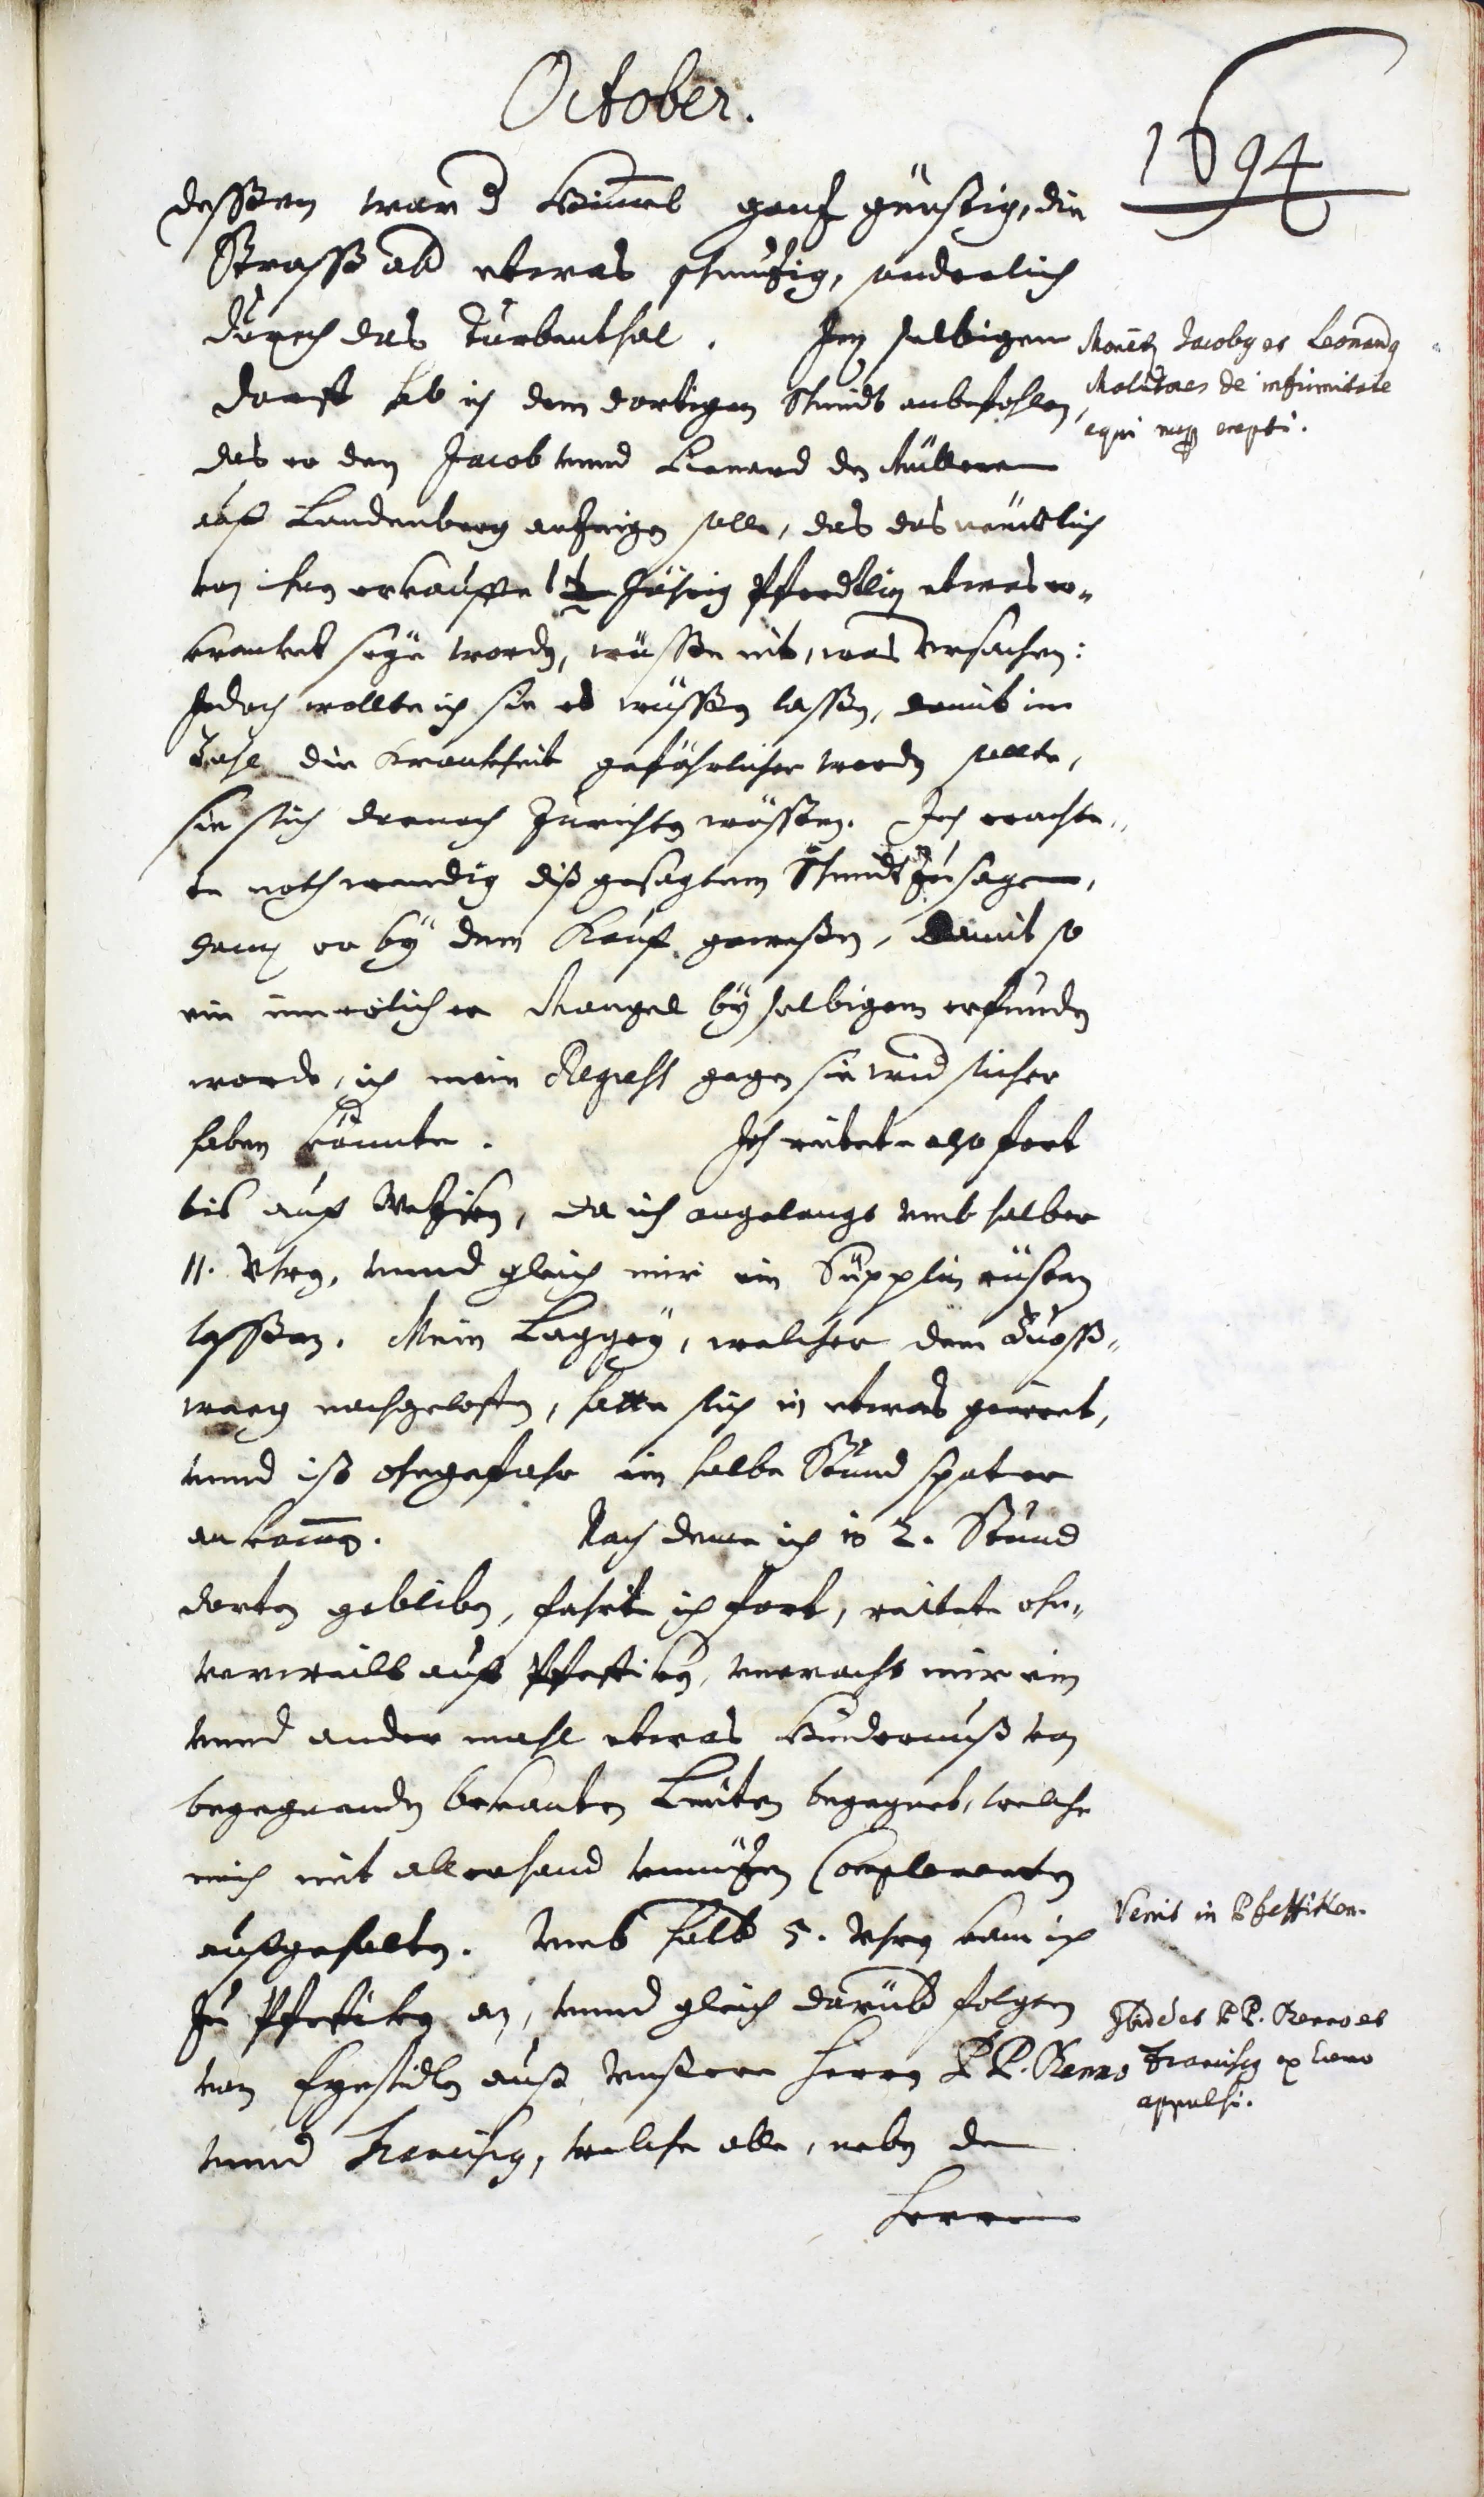 October.
1694
dessen war d Himel ganz günstig, die
Strass abd etwas schmuzig, sonderlich
durch das Turbenthal. Jn selbigem
Dorff hab ich dem dortigen Schmidt anbefohlen,
das er den Jacob unnd Lienard den Mülleren
auf Landenberg anzeigen solle, das das neüwlich
von ihnen erkauffte 1½ Jährig Pferdtlin etwas er„
krancket seye worden, wüsse nit, was Ursachen:
Jedoch wollte ich sie es wüssen lassen, damit im
Fahl die Kranckheit gefährlicher werden sollte,
sie sich darnach zurichten wüssten. Jch erachte„
te nothwendig diß gesagtem Schmidt zusagen,
dann er bÿ dem Kauf gewesen, damit so
ein innerlicher Mangel bÿ selbigem erfunden
wurde, ich mein Regress gegen sie wid sucher
haben könnte. Jch reitete also fort
bis auf Wetziken, da ich angelangt umb halber
11. Uhren, unnd gleich mir ein Süpplin rüsten
lassen. Mein Laggey, welcher dem Fuoss„
weeg nachgeloffen, hatte sich in etwas geirret,
unnd ist ohngefahr ein halbe Stund spater
ankomen. Nach deme ich in 2. Stund
dorten gebliben, fahrte ich fort, reitete ohn„
verweilt auf Pfeffiken, uneracht mir ein
unnd ander mahl etwas Hindernuß von
begegnenden bekanten Leüten begegnet, welche
mich mit allerhand unnüzen Complementen
aufgehalten. Umb halb 5. Uhren kam ich
zu Pfeffiken an, unnd gleich darüber folgten
von Eynsidlen auß unsere Herren P P. Benno
unnd Franciscus, welche alle, neben dem
Herren
Monetur Jacobus et Leonardus
Molitores de infirmitate
equi nuper empti.
Venit in Pfeffikon.
Ibidem et P P. Benno et
Franciscus ex
appulsi.